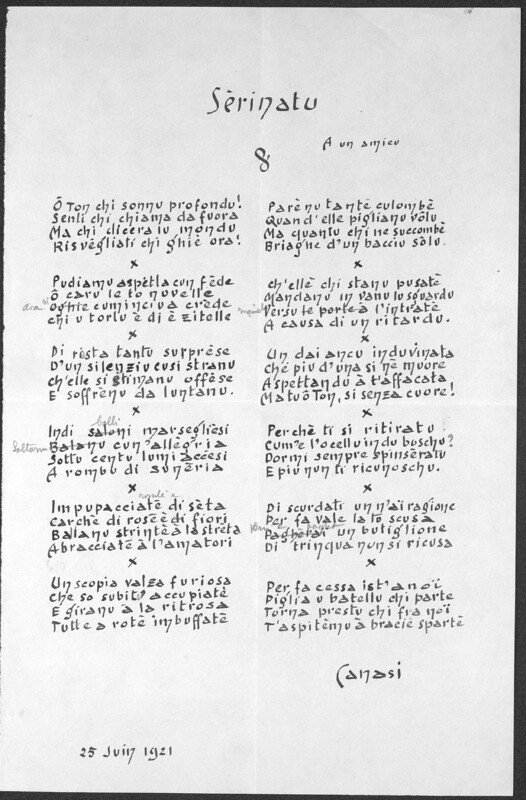 Sèrinatu
A un amicu
8
Ô Ton chi sonnu profondu!
Senti chi chiama da fuora
Ma chi dicera lu mondu
Risvègliati chi ghiè ora!
x
Pudiamu aspètla cun fède
Ô caru le to novelle
Oghie cuminciu a crède
chi u tortu è di è zitelle
x
Di rèsta tantu surprèse
D'un silenziu cusi stranu
ch'elle si stimanu offèse
E soffrènu da luntanu.
x
belli
Indi saloni marsegliesi
Saltanu Balanu cun'allegria
Sottu centu lumi accesi
A rombu di sunèria
x
Impupacciatè di sèta
Carchè di rosè è di fiori
Ballanu strintè à la strèta
Abracciatè à l'amatori
x
Un scopia valza furiosa
Che so subitu accupiatè
E giranu à la ritrosa
Tutte a rotè imbuffatè
Parènu tantè culombè
Quand'elle piglianu vôlu
Ma quantu chi ne succombè
Briagne d'un bacciu sôlu.
x
ch'ellè chi stanu pusatè
Mandanu in vanu lu sguardu
Versu le porte à l'intratè
A causa di un ritardu.
x
Un dai ancu induvinata
Chè piu d'una si nè muore
Aspettandu à t'affacata
Ma tu ô Ton, si senza cuore!
x
Perchè ti si ritiratu
Cum'è l'ocellu indu boschu?
Dormi sempre spinsèratu
E piu nun ti ricunoschu.
x
Di scurdati un n'ai ragione
Per fa vale la to scusa
Pagherai un butiglione
Di trinqua nun si ricusa
x
Per fa cessa ist'anoï
Piglia u batellu chi parte
Torna prestu chi fra noï
T'aspitèmu à braciè spartè
Canasi
25 Juin 1921